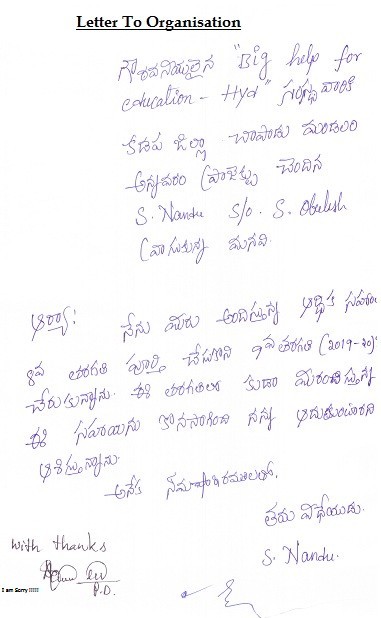 Letter To Organisation
గౌరవనీయులైన "Big help for
education - Hyd" సంస్థ వారికి
కడప జిల్లా చాపాడు మండలం
అన్నవరం ప్రాజెక్టు చెందిన
S. Nandu S/o. S. Obulesh
వ్రాసుకున్న మనవి.
ఆర్యా! నేను మీరు అందిస్తున్న ఆర్థిక సహాయ
8వ తరగతి పూర్తి చేసుకొని 9వ తరగతి (2019-20)
చేరుకున్నాను. ఈ తరగతిలో కూడా మీరందిస్తున్న
ఈ సహాయను కొనసాగించి నన్ను ఆదుకుంటారని
ఆశిస్తున్నాను.
అనేక నమస్కారములతో,
తమ విధేయుడు.
S. Nandu.
with thanks
P.D.
I am Sorry !!!!!